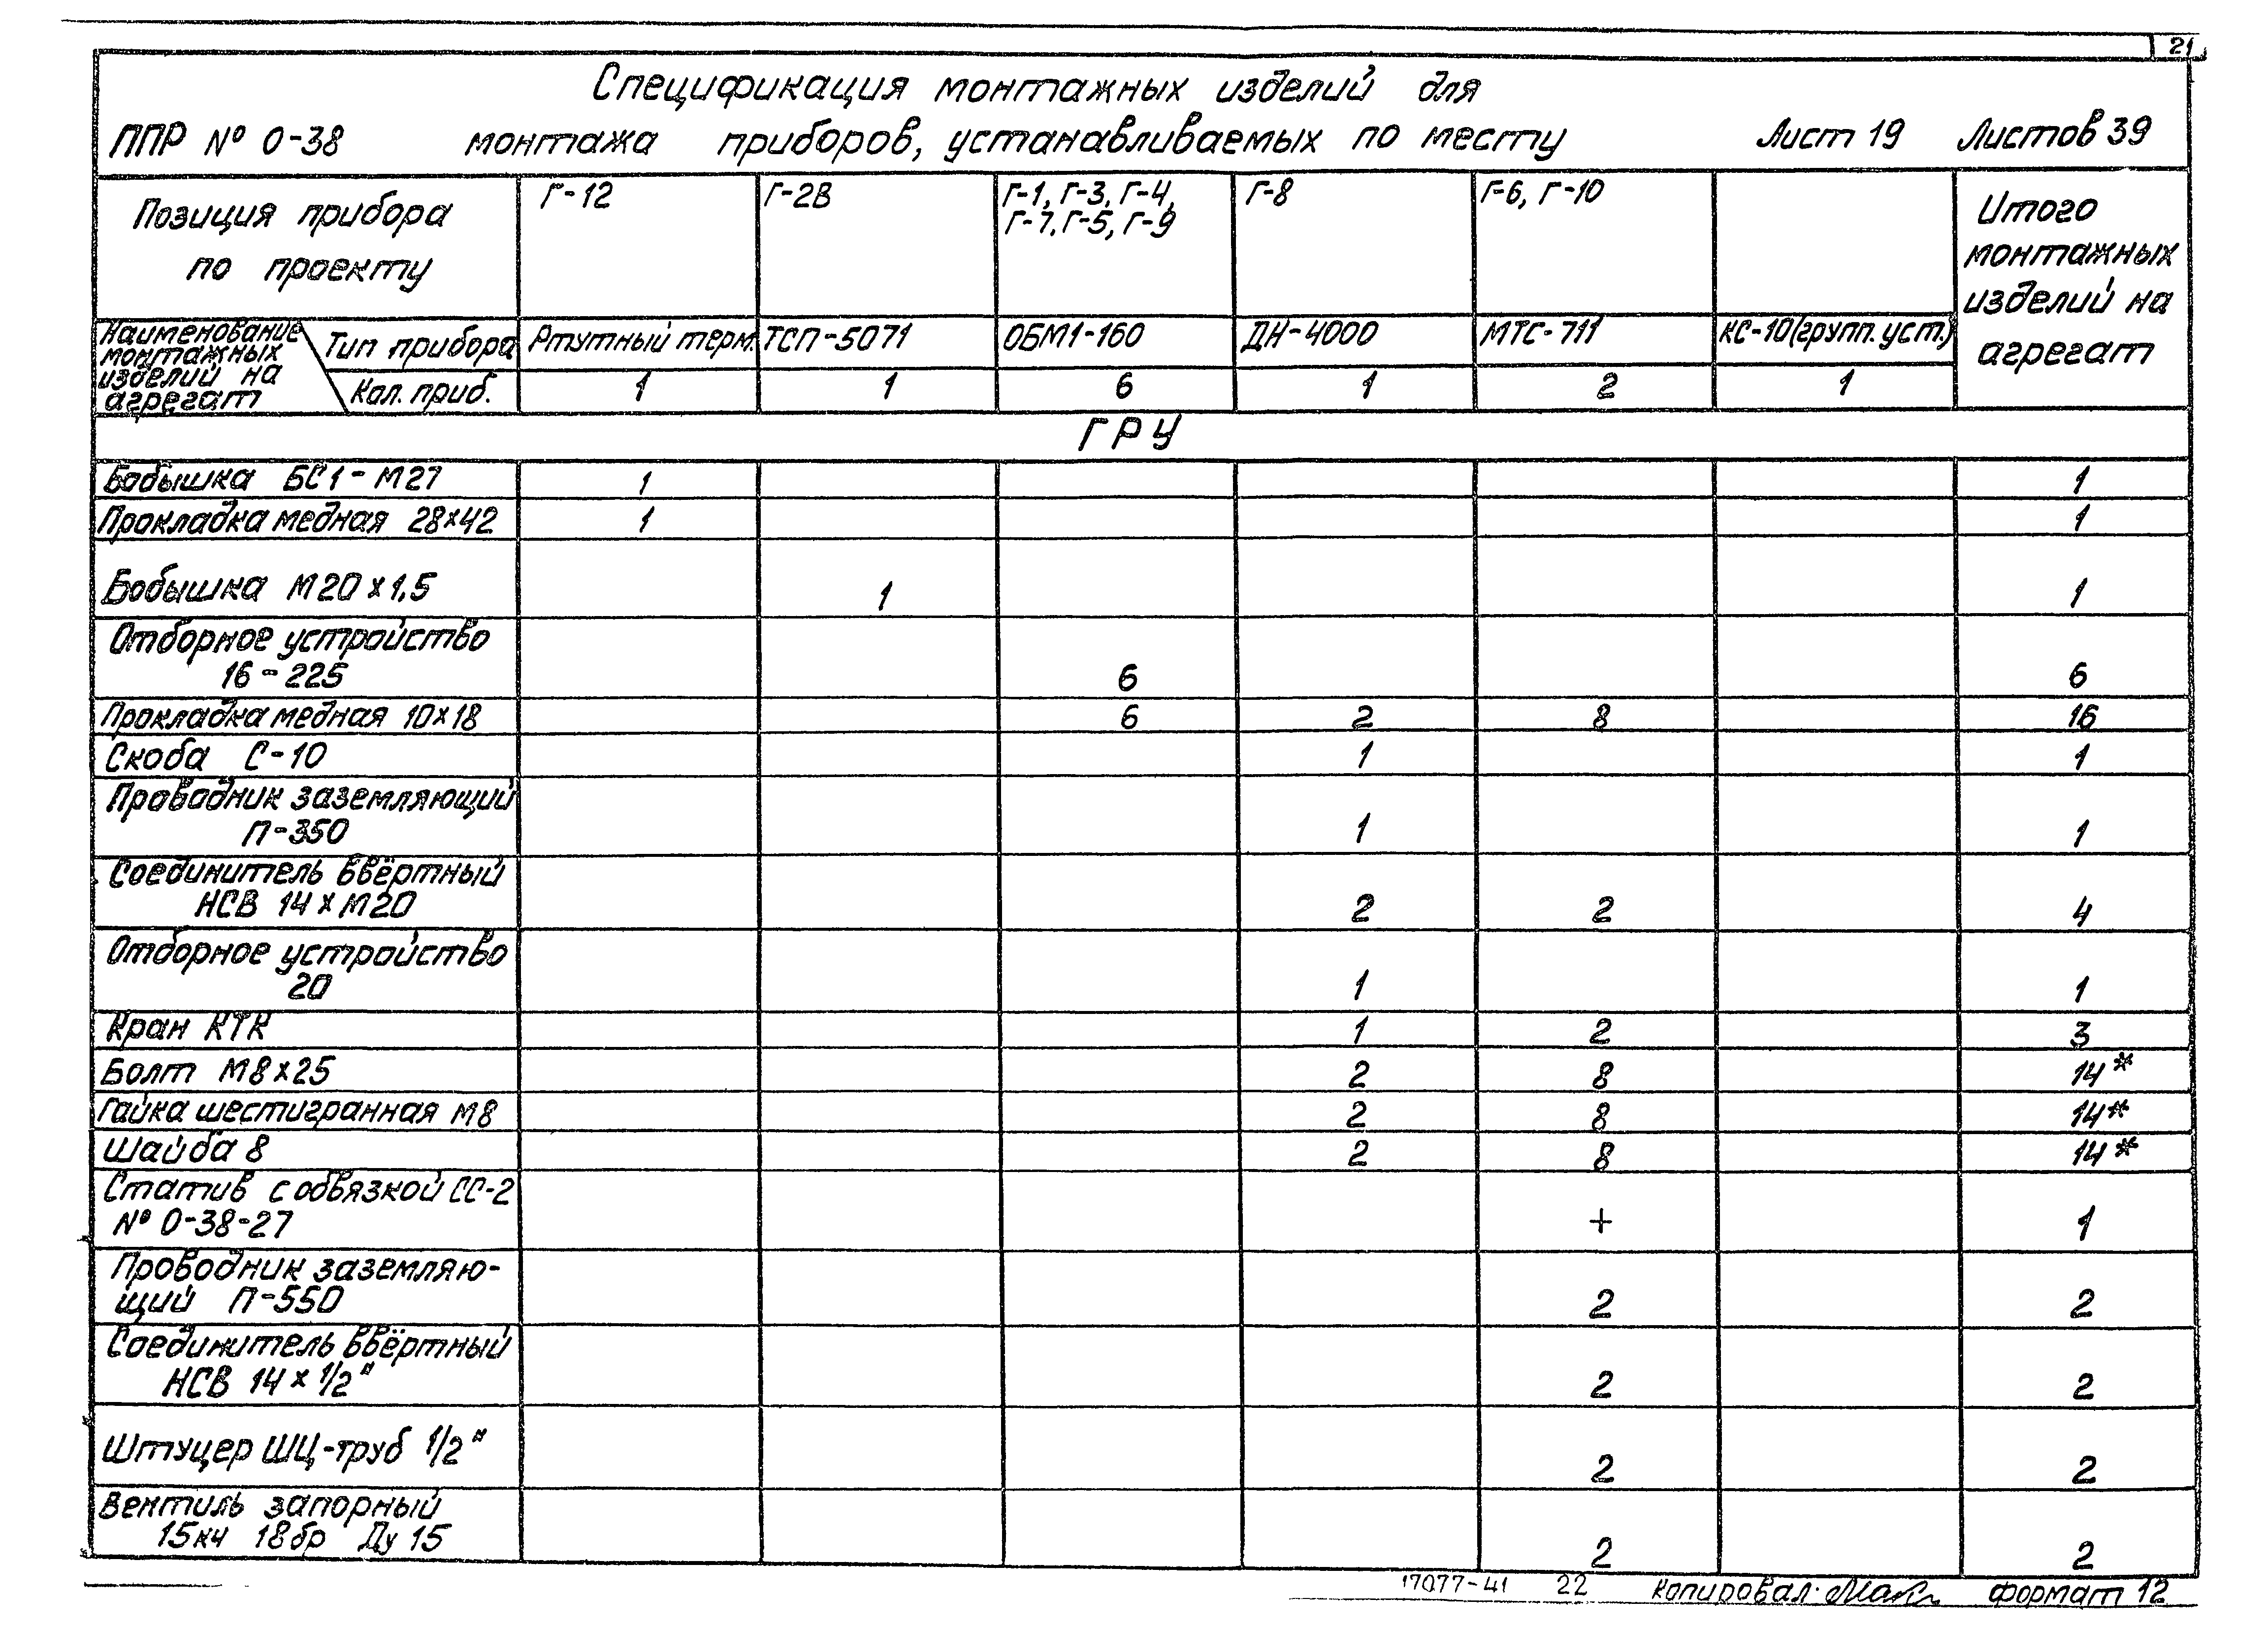 21
Спецификация монтажных изделий для
ППР № 0-38 монтажа приборов, устанавливаемых по месту Лист 19 Листов 39
Позиция прибора
по проекту
Г-12
Г-2В
Г-1, Г-3, Г-4,
Г-7, Г-5, Г-9
Г-8
Г-6, Г-10
Итого
монтажных
изделий на
агрегат
Наименование
монтажных
изделий на
агрегат
Тип прибора Ртутный терм. ТСП-5071 ОБМ1-160 ДН-4000 МТС-711 КС-10(групп.уст.)
Кол. приб. 1 1 6 1 2 1
ГРУ
Бобышка БС1-М27 1 1
Прокладка медная 28х42 1 1
Бобышка М20х1,5 1 1
Отборное устройство
16-225 6 6
Прокладка медная 10х18 6 2 8 16
Скоба С-10 1 1
Проводник заземляющий
П-350 1 1
Соединитель ввёртный
НСВ 14хМ20 2 2 4
Отборное устройство
20 1 1
Кран КТК 1 2 3
Болт М8х25 2 8 14*
Гайка шестигранная М8 2 8 14*
Шайба 8 2 8 14*
Статив с обвязкой СС-2
№ 0-38-27 + 1
Проводник заземляю-
щий П-550 2 2
Соединитель ввёртный
НСВ 14х1/2" 2 2
Штуцер ШЦ-труб 1/2" 2 2
Вентиль запорный
15кч 18бр Ду 15 2 2
17077-41 22 Копировал: формат 12